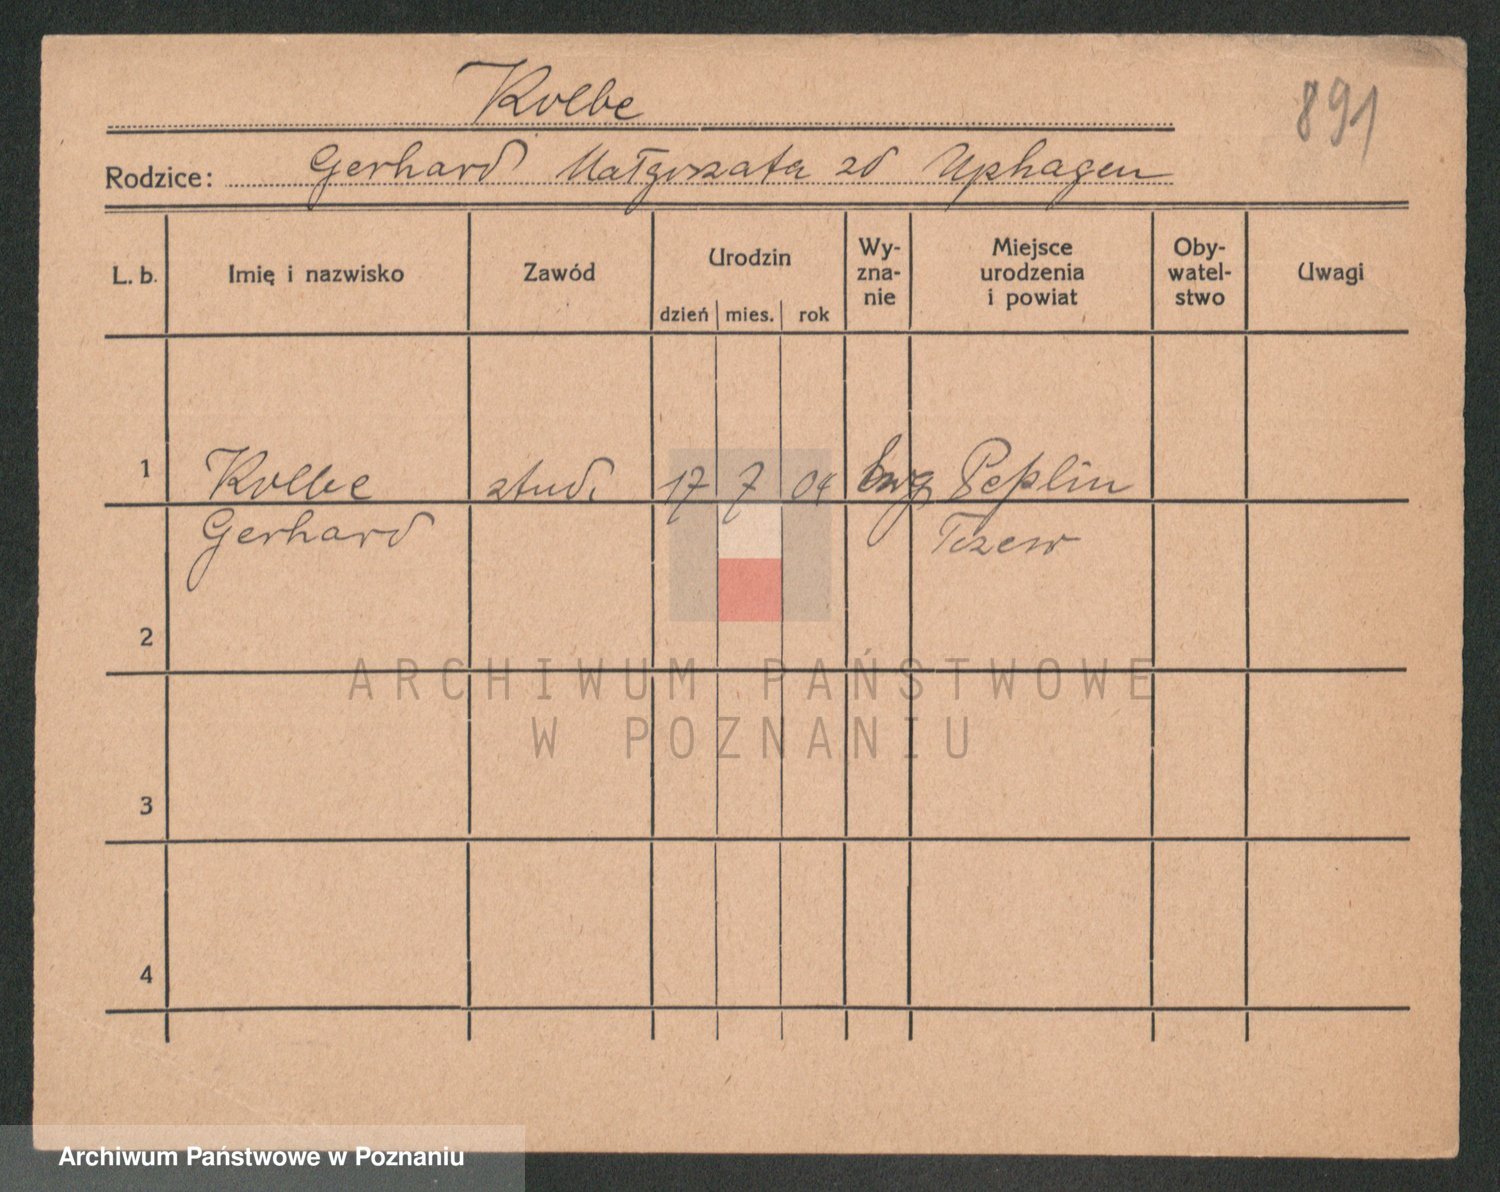 Kolbe
891
Rodzice: Gerhard Małgorzata zd Uphagen
L. b. Imię i nazwisko Zawód Urodzin dzień mies. rok Wy-zna-nie Miejsce urodzenia i powiat Oby-watel-stwo Uwagi
1 Kolbe stud. 17 7 04 ewg Peplin
Gerhard Tczew
2
ARCHIWUM PAŃSTWOWE
W POZNANIU
3
4
Archiwum Państwowe w Poznaniu